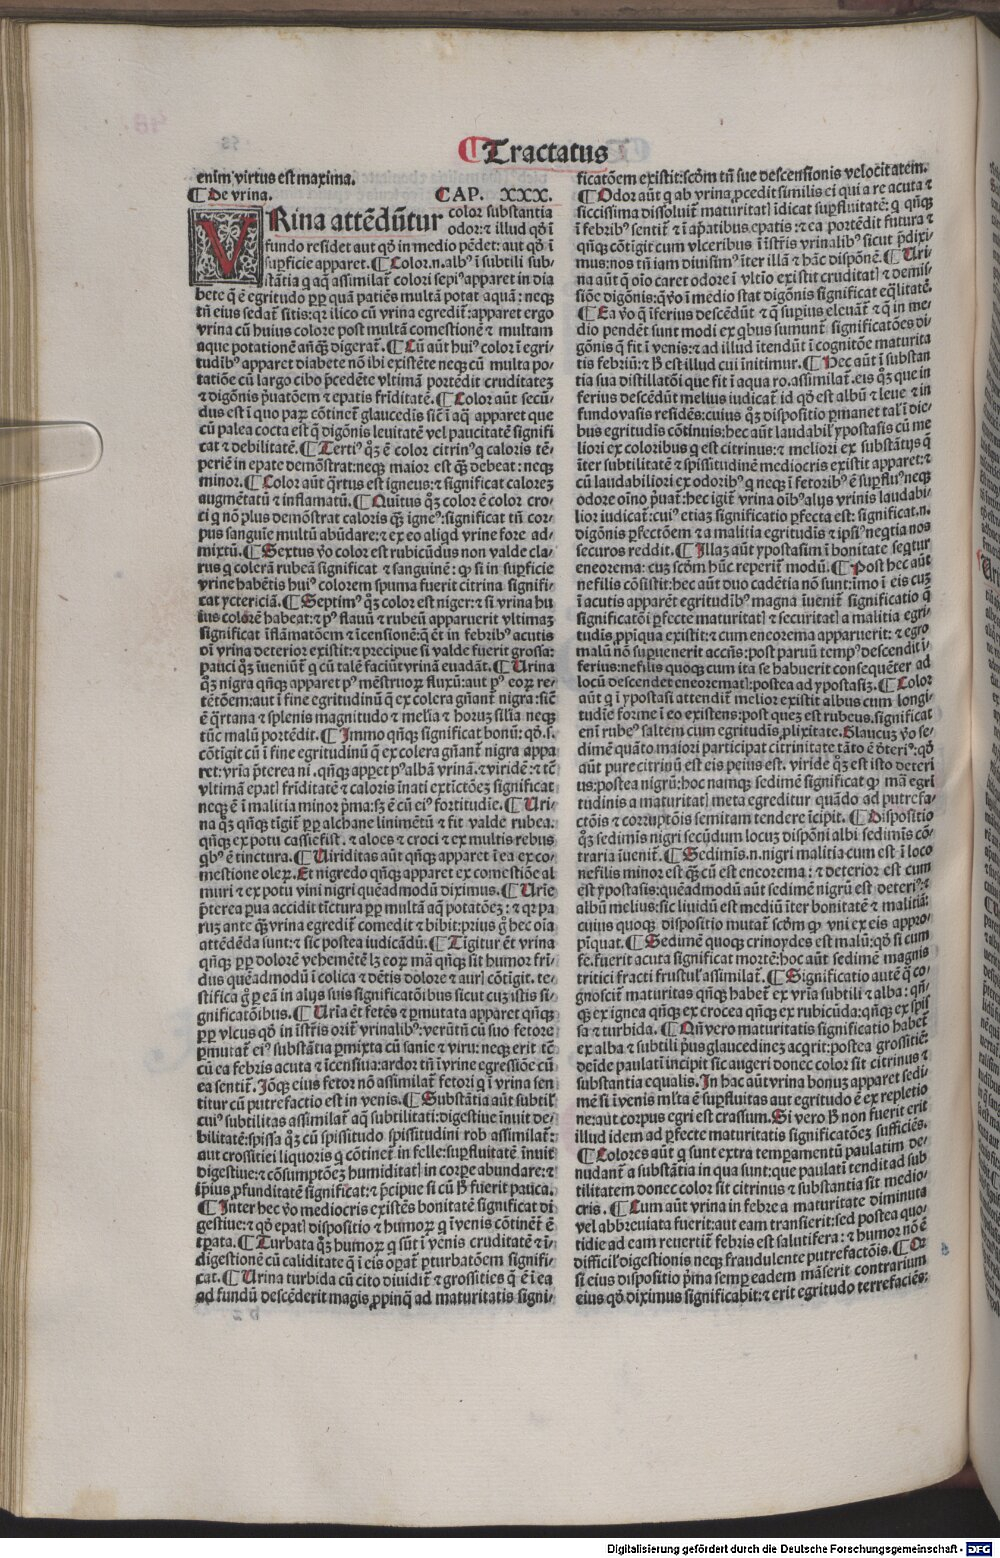 Tractatus
enim virtus est maxima.
¶ De vrina. CAP. XXX.
VRina attēdūtur color substantia
odor: ⁊ illud qđ ī
fundo residet aut qđ in medio pēdet: aut qđ ī
supficie apparet. ¶ Color .n. albꝰ ī subtili sub-
stātia q̄ aq̄ assimilat̄ colori sepiꝰ apparet in dia
bete q̄ ē egritudo ꝓp̄ quā patiēs multā potat aquā: neqꝫ
tn̄ eius sedat̄ sitis: qꝛ ilico cū vrina egredit̄: apparet ergo
vrina cū huius colore post multā comestionē ⁊ multam
aque potationē anq̄ꝫ digerat̄. ¶ Cū aūt huiꝰ color ī egri
tudībꝰ apparet diabete nō ibi existēte neqꝫ cū multa po-
tatiōe cū largo cibo p̄cedēte vltimā portēdit cruditateꝫ
⁊ digōnis p̄uatōem ⁊ epatis friditatē. ¶ Color aūt secū-
dus est ī quo paꝝ cōtinet̄ glaucedīs sic̄ ī aq̄ apparet que
cū palea cocta est q̄ digōnis leuitatē vel paucitatē signifi
cat ⁊ debilitatē. ¶ Tertiꝰ qꝫ ē color citrinꝰ q̄ caloris tē-
periē in epate demōstrat: neqꝫ maior est q̄ꝫ debeat: neqꝫ
minor. ¶ Color aūt q̄rtus est igneus: ⁊ significat caloreꝫ
augmētatū ⁊ inflamatū. ¶ Quītus qꝫ color ē color cro-
ci q̄ nō plus demōstrat caloris q̄ꝫ igneꝰ: significat tn̄ cor-
pus sanguīe multū abūdare: ⁊ ex eo aliqd vrine fore ad-
mixtū. ¶ Sextus v̄o color est rubicūdus non valde cla-
rus q̄ colerā rubeā significat ⁊ sanguinē: ꝙ si in supficie
vrine habētis huiꝰ colorem spuma fuerit citrina signifi-
cat yctericiā. ¶ Septimꝰ qꝫ color est niger: ⁊ si vrina hu
ius colorē habeat: ⁊ pꝰ flauū ⁊ rubeū apparuerit vltimaꝫ
significat īflāmatōem ⁊ īcensionē: q̄ ēt in febribꝰ acutis
oī vrina deterior existit: ⁊ precipue si valde fuerit grossa:
pauci qꝫ īueniūt̄ q̄ cū talē faciūt vrinā euadāt. ¶ Urina
qꝫ nigra qn̄qꝫ apparet pꝰ mēstruoꝝ fluxū: aut pꝰ eoꝝ re-
tētōem: aut ī fine egritudinū q̄ ex colera gn̄ant̄ nigra: sic̄
ē q̄rtana ⁊ splenis magnitudo ⁊ melīa ⁊ horuꝫ silīa neqꝫ
tūc malū portēdit. ¶ Immo qn̄qꝫ significat bonū: qđ .s.
cōtigit cū ī fine egritudinū q̄ ex colera gn̄ant̄ nigra appa
ret: vrīa p̄terea ni. qn̄qꝫ apꝑet pꝰ albā vrinā. ⁊ viridē: ⁊ tē
vltimā epatꝭ friditatē ⁊ caloris īnati extīctōeꝫ significat
neqꝫ ē ī malitia minor p̄ma: sꝫ ē cū eiꝰ fortitudie. ¶ Uri-
na qꝫ qn̄qꝫ tīgit̄ ꝓp̄ alchane linimētū ⁊ fit valde rubea.
qn̄qꝫ ex potu cassiefist. ⁊ aloes ⁊ croci ⁊ ex multis rebus
qbꝰ ē tinctura. ¶ Uiriditas aūt qn̄qꝫ apparet ī ea ex co-
mestione oleꝝ. Et nigredo qn̄qꝫ apparet ex comestiōe al
muri ⁊ ex potu vini nigri quēadmodū diximus. ¶ Urīe
p̄terea ꝑua accidit tīctura ꝓp̄ multā aq̄ potatōeꝫ: ⁊ qꝛ pa
ruꝫ ante q̄ꝫ vrina egredit̄ comedit ⁊ bibit: prius g̊ hec oīa
attēdēda sunt: ⁊ sic postea iudicādū. ¶ Tigitur ēt vrina
qn̄qꝫ ꝓp̄ dolorē vehemētē lꝫ eoꝝ mā qn̄qꝫ sit humor fri-
dus quēadmodū ī colica ⁊ dētis dolore ⁊ aurꝭ cōtigit. te-
stifica g̊ ꝑ eā in alijs suis significatōibus sicut cuꝫ istis si-
gnificatōibus. ¶ Urīa ēt fetēs ⁊ ꝑmutata apparet qn̄qꝫ
ꝓp̄ vlcus qđ in īstris orit̄ vrinalibꝰ: verūtn̄ cū suo fetore
ꝑmutat̄ eiꝰ substātia ꝑmixta cū sanie ⁊ viru: neqꝫ erit tē
cū ea febris acuta ⁊ īcensiua: ardor tn̄ ī vrine egressiōe cū
ea sentit̄. Iōqꝫ eius fetor nō assimilat̄ fetori q̄ ī vrina sen
titur cū putrefactio est in venis. ¶ Substātia aūt subtil'
cuiꝰ subtilitas assimilat̄ aq̄ subtilitati: digestiue īnuit de-
bilitatē: spissa qꝫ cū spissitudo spissitudini rob assimilat̄:
aut crossitiei liquoris q̄ cōtinet̄ in felle: supfluitatē īnuit
digestiue: ⁊ cōsumptōeꝫ humiditatꝭ in corꝑe abundare: ⁊
ip̄ius ꝓfunditatē significat: ⁊ p̄cipue si cū ꝧ fuerit pauca.
¶ Inter hec v̄o mediocris existēs bonitatē significat di
gestiue: ⁊ qđ epatꝭ dispositio ⁊ humoꝝ q̄ ī venis cōtinēt̄ ē
tꝑata. ¶ Turbata qꝫ humoꝝ q̄ sūt ī venis cruditatē ⁊ ī-
digestionē cū caliditate q̄ ī eis oꝑat̄ ꝑturbatōem signifi-
cat. ¶ Urina turbida cū cito diuidit̄ ⁊ grossities q̄ ē ī ea
ad fundū descēderit magis ꝓpinq̄ ad maturitatis signi-
ficatōem existit: scḋm tn̄ sue descensionis velocitatem.
¶ Odor aūt q̄ ab vrina ꝓcedit similis ei qui a re acuta ⁊
siccissima dissoluit̄ maturitatꝭ īdicat supfluitatē: q̄ qn̄qꝫ
ī febribꝰ sentit̄ ⁊ ī apatibus epatis: ⁊ ea portēdit futura ⁊
qn̄qꝫ cōtigit cum vlceribus ī īstris vrinalibꝰ sicut p̄dixi-
mus: nos tn̄ iam diuisimꝰ īter illā ⁊ hāc dispōnē. ¶ Uri-
na aūt q̄ oīo caret odore ī vltīo existit cruditatꝭ ⁊ demis-
siōe digōnis: qv̄o ī medio stat digōnis significat eq̄litatē.
¶ Ea v̄o q̄ īferius descēdūt ⁊ q̄ supius eleuāt̄ ⁊ q̄ in me-
dio pendēt sunt modi ex qbus sumunt̄ significatōes di-
gōnis q̄ fit ī venis: ⁊ ad illud ītendūt ī cognitōe maturita
tis febriū: ⁊ ꝧ est illud cui īnitimur. ¶ Hec aūt ī substan
tia sua distillatōi que fit ī aqua ro. assimilat̄. eis qꝫ que in
ferius descēdūt melius iudicat̄ id qđ est albū ⁊ leue ⁊ in
fundo vasis residēs: cuius qꝫ dispositio ꝑmanet tal' ī die-
bus egritudīs cōtinuis: hec aūt laudabil' ypostasis cū me
liori ex coloribus q̄ est citrinus: ⁊ meliori ex substātijs q̄
īter subtilitatē ⁊ spissitudinē mediocris existit apparet: ⁊
cū laudabiliori ex odoribꝰ q̄ neqꝫ ī fetoribꝰ ē supfluꝰ neqꝫ
odore oīno p̄uat̄: hec igit̄ vrina oībꝰ alijs vrinis laudabi-
lior iudicat̄: cuiꝰ etiaꝫ significatio ꝑfecta est: significat .n.
digōnis ꝑfectōem ⁊ a malitia egritudīs ⁊ ipsiꝰ neqtia nos
securos reddit. ¶ Illaꝫ aūt ypostasim ī bonitate seqtur
eneorema: cuꝫ scḋm hūc reperit̄ modū. ¶ Post hec aūt
nefilis cōsistit: hec aūt duo cadētia nō sunt: īmo ī eis cuꝫ
ī acutis apparēt egritudībꝰ magna īuenit̄ significatio q̄
significatōi ꝑfecte maturitatꝭ ⁊ securitatꝭ a malitia egri
tudīs ꝓpīqua existit: ⁊ cum eneorema apparuerit: ⁊ egro
malū nō supuenerit accn̄s: post paruū tempꝰ descendit ī
ferius: nefilis quoqꝫ cum ita se habuerit consequēter ad
locū descendet eneorematꝭ: postea ad ypostasiꝫ. ¶ Color
aūt q̄ ī ypostasi attendit̄ melior existit albus cum longi
tudīe forme ī eo existens: post queꝫ est rubeus. significat
eni rubeꝰ saltem cum egritudīs ꝓlixitate. Glaucuꝫ v̄o se-
dimē quāto maiori participat citrinitate tāto ē deteriꝰ: qđ
aūt pure citrinū est eis peius est. viride qꝫ est isto deteri
us: postea nigrū: hoc namqꝫ sedimē significat ꝙ mā egri
tudinis a maturitatꝭ meta egreditur quādo ad putrefa-
ctōis ⁊ corruptōis semitam tendere īcipit. ¶ Dispositio
qꝫ sedimīs nigri secūdum locuꝫ dispōni albi sedimīs cō-
traria īuenit̄. ¶ Sedimīs .n. nigri malitia cum est ī loco
nefilis minor est q̄ꝫ cū est eneorema: ⁊ deterior est cum
est ypostasis: quēadmodū aūt sedimē nigrū est deteriꝰ: ⁊
albū melius: sic liuidū est mediū īter bonitatē ⁊ malitiā:
cuius quoqꝫ dispositio mutat̄ scḋm ꝙ vni ex eis appro-
pīquat. ¶ Sedimē quoqꝫ crinoydes est malū: qđ si cum
fe. fuerit acuta significat mortē: hoc aūt sedimē magnis
tritici fracti frustulꝭ assimilat̄. ¶ Significatio autē q̄ co-
gnoscit̄ maturitas qn̄qꝫ habet̄ ex vrīa subtili ⁊ alba: qn̄-
qꝫ ex ignea qn̄qꝫ ex crocea qn̄qꝫ ex rubicūda: qn̄qꝫ ex spis
sa ⁊ turbida. ¶ Qn̄ vero maturitatis significatio habet̄
ex alba ⁊ subtili p̄us glaucedineꝫ acqrit: postea grossitiē:
deīde paulatī incipit sic augeri donec color sit citrinus ⁊
substantia equalis. In hac aūt vrina bonuꝫ apparet sedi-
mē si ī venis mlta ē supfluitas aut egritudo ē ex repletio
ne: aut corpus egri est crassum. Si vero ꝧ non fuerit erit
illud idem ad ꝑfecte maturitatis significatōeꝫ sufficiēs.
¶ Colores aūt q̄ sunt extra temꝑamentū paulatim de-
nudant̄ a substātia in qua sunt: que paulatī tendit ad sub
tilitatem donec color sit citrinus ⁊ substantia sit medio-
cris. ¶ Cum aūt vrina in febre a maturitate diminuta
vel abbreuiata fuerit: aut eam transierit: sed postea quo-
tidie ad eam reuertit̄ febris est salutifera: ⁊ humor nō ē
difficil' digestionis neqꝫ fraudulente putrefactōis. ¶ Qđ
si eius dispositio p̄ma semꝑ eadem māserit contrarium
eius qđ diximus significabit: ⁊ erit egritudo terrefaciēs:
Digitalisierung gefördert durch die Deutsche Forschungsgemeinschaft - DFG